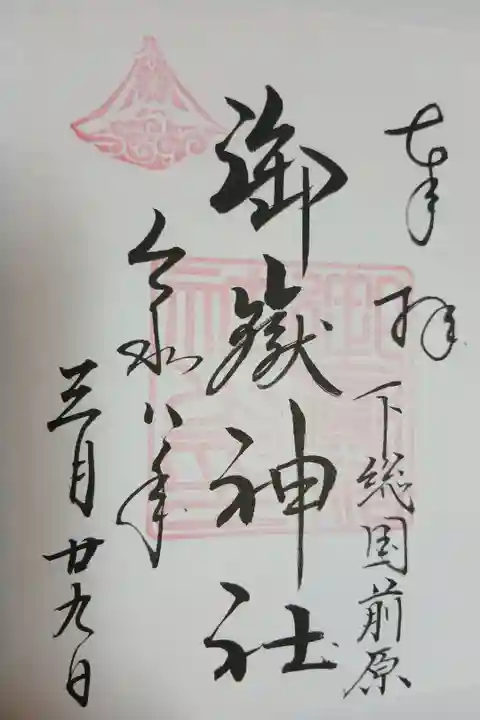 奉拝
下総国前原
御嶽神社
令和八年
三月廿九日